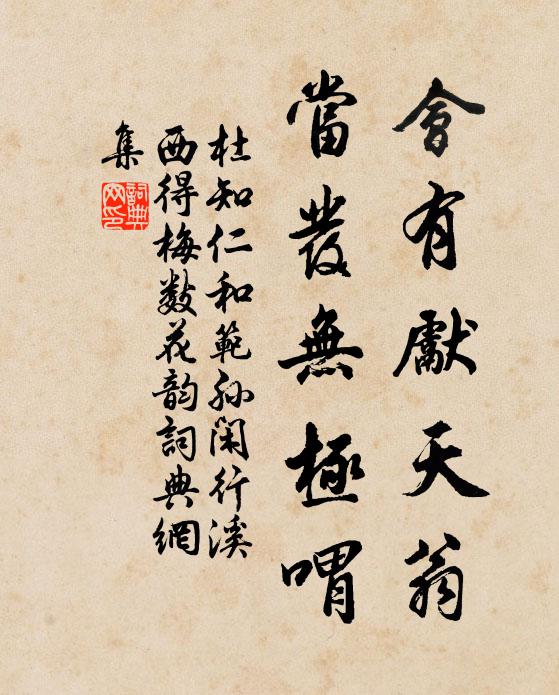 會有獻天翁
當發無極喟
杜知仁和範孫閑行溪
西得梅數花韵詞典網
集
詞典
网印